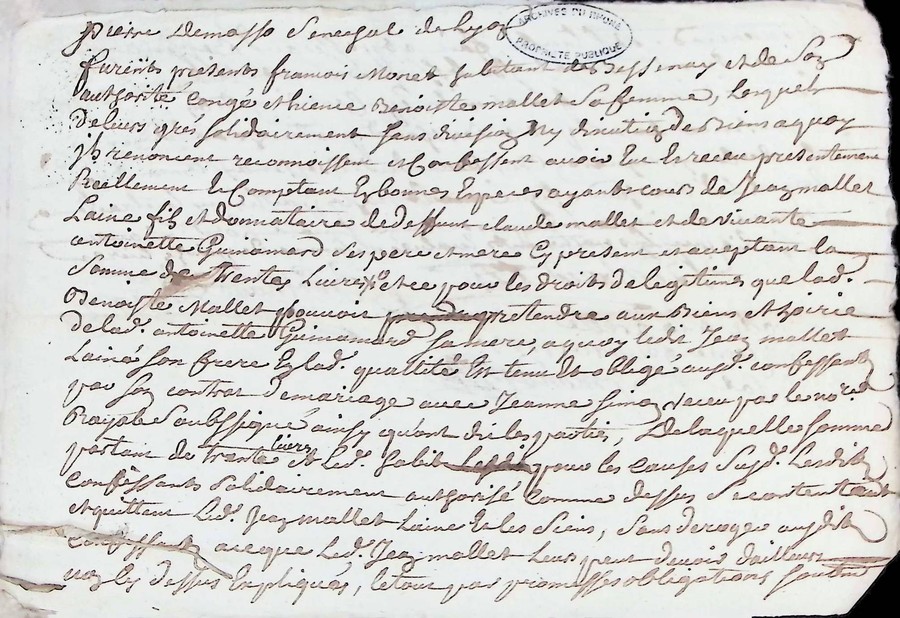 pierre Demasso Seneschal de Lyon
ARCHIVES DU RHONE
PROPRIETE PUBLIQUE
furents presents francois Moret habitant de Bessenay et de Son
authorité congé et licence Benoitte mallet Sa femme, Lesquels
De leurs grés solidairement sans division Ny discution De Biens a quoy
ils renoncent reconnoissent et Confessent avoir Eu Et receu presentement
Reellement Et Comptant En bonnes Especes ayant cours de Jean mallet
Laine fils et donnataire de deffunt claude mallet et de vivante
antoinette Guinamard Ses pere et mere Cy present et acceptant la
Somme de trentes Livres et ce pour les droits de legitimes que lad.
Benoiste Mallet pouvoir pretendre aux Biens et hoirie
De lad. antoinette Guinamard Sa mere, a quoy ledit Jean mallet
Lainé Son frere En lad. quallité Est tenu Et obligé ausd. confessants
par Son contrat de mariage avec Jeanne receu par le no.re
Royal Soubssigné ainsy qu'ont dit les parties, De laquelle Somme
partant de trente Livres Et Led. pour les causes Susd. Lesdits
Conffessants Solidairement authorisé Comme dessus Se contentent
Et quittent Led. Jean mallet Laine Et les Siens, Sans deroger ausdits
Confessants a ce que Led. Jean mallet Leurs peut devoir dailleurs
les dessus Expliqués, le tout par promesses obligations